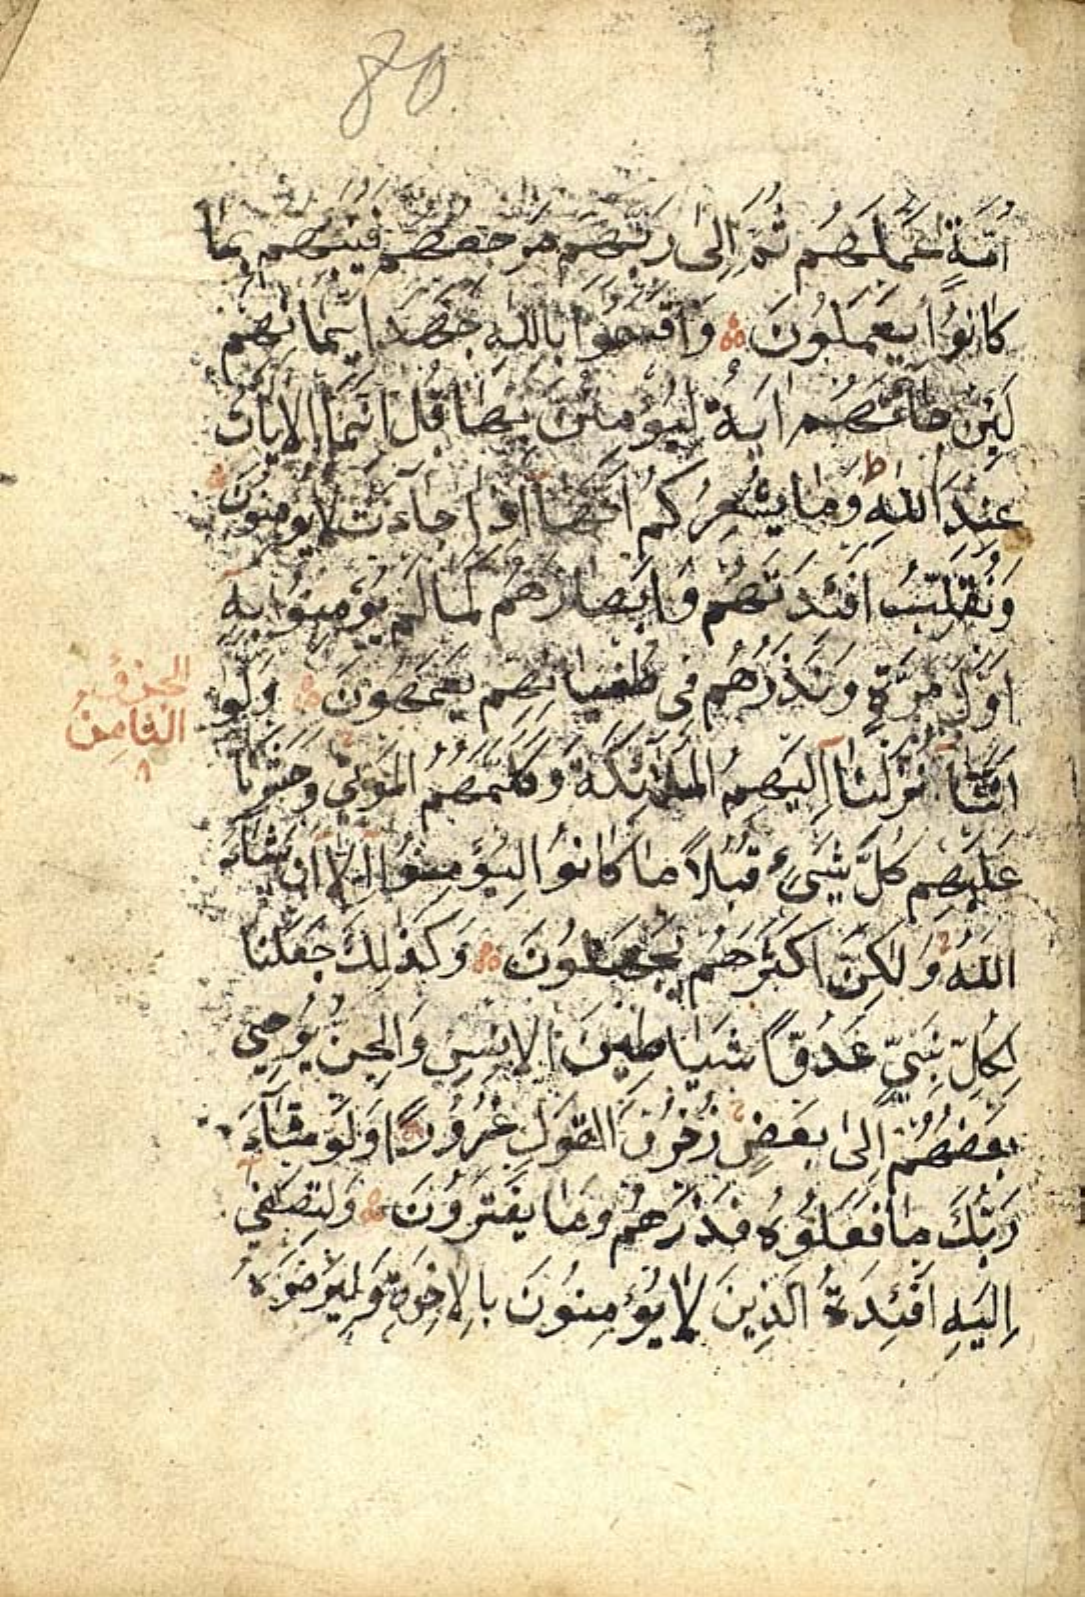 80
اُمَّةٍ عَمَلَهُم ثُمَّ اِلىٰ رَبِّهِم مَرْجِعُهُم فَيُنَبِّئُهُم بِمَا
كَانُوا يَعْمَلُونَ وَاَقْسَمُوا بِاللهِ جَهْدَ اَيْمَانِهِم
لَئِن جَاءَتْهُم اٰيَةٌ لَيُؤْمِنُنَّ بِهَا قُل اِنَّمَا الاٰيَاتُ
عِندَ اللهِ ط وَمَا يُشْعِرُكُم اَنَّهَا اِذَا جَاءَت لَا يُؤمِنُونَ
وَنُقَلِّبُ اَفْئِدَتَهُم وَاَبْصَارَهُم كَمَا لَم يُؤمِنُوا بِهِ
اَوَّلَ مَرَّةٍ وَنَذَرُهُم فِى طُغْيَانِهِم يَعْمَهُونَ وَلَوْ
الجزؤ
الثامن
٨
اَنَّنَا نَزَّلْنَا اِلَيْهِمُ المَلٰئِكَةَ وَكَلَّمَهُمُ المَوْتٰى وَحَشَرْنَا
عَلَيْهِم كُلَّ شَىْءٍ قُبُلًا مَا كَانُوا لِيُؤْمِنُوا اِلَّا اَن يَشَاءَ
اللهُ وَلٰكِنَّ اَكْثَرَهُم يَجْهَلُونَ وَكَذٰلِكَ جَعَلْنَا
لِكُلِّ نَبِىٍّ عَدُوًّا شَيَاطِينَ الاِنْسِ وَالجِنِّ يُوحِى
بَعْضُهُمْ اِلىٰ بَعْضٍ زُخْرُفَ القَوْلِ غُرُورًا وَلَوْ شَاءَ
رَبُّكَ مَا فَعَلُوهُ فَذَرْهُمْ وَمَا يَفْتَرُونَ وَلِتَصْغىٰ
اِلَيْهِ اَفْئِدَةُ الَّذِينَ لَا يُؤْمِنُونَ بِالاٰخِرَةِ وَلِيَرْضَوْهُ